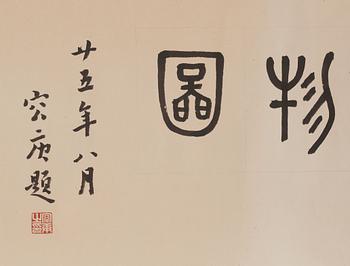 物圖
廿五年八月
容庚題